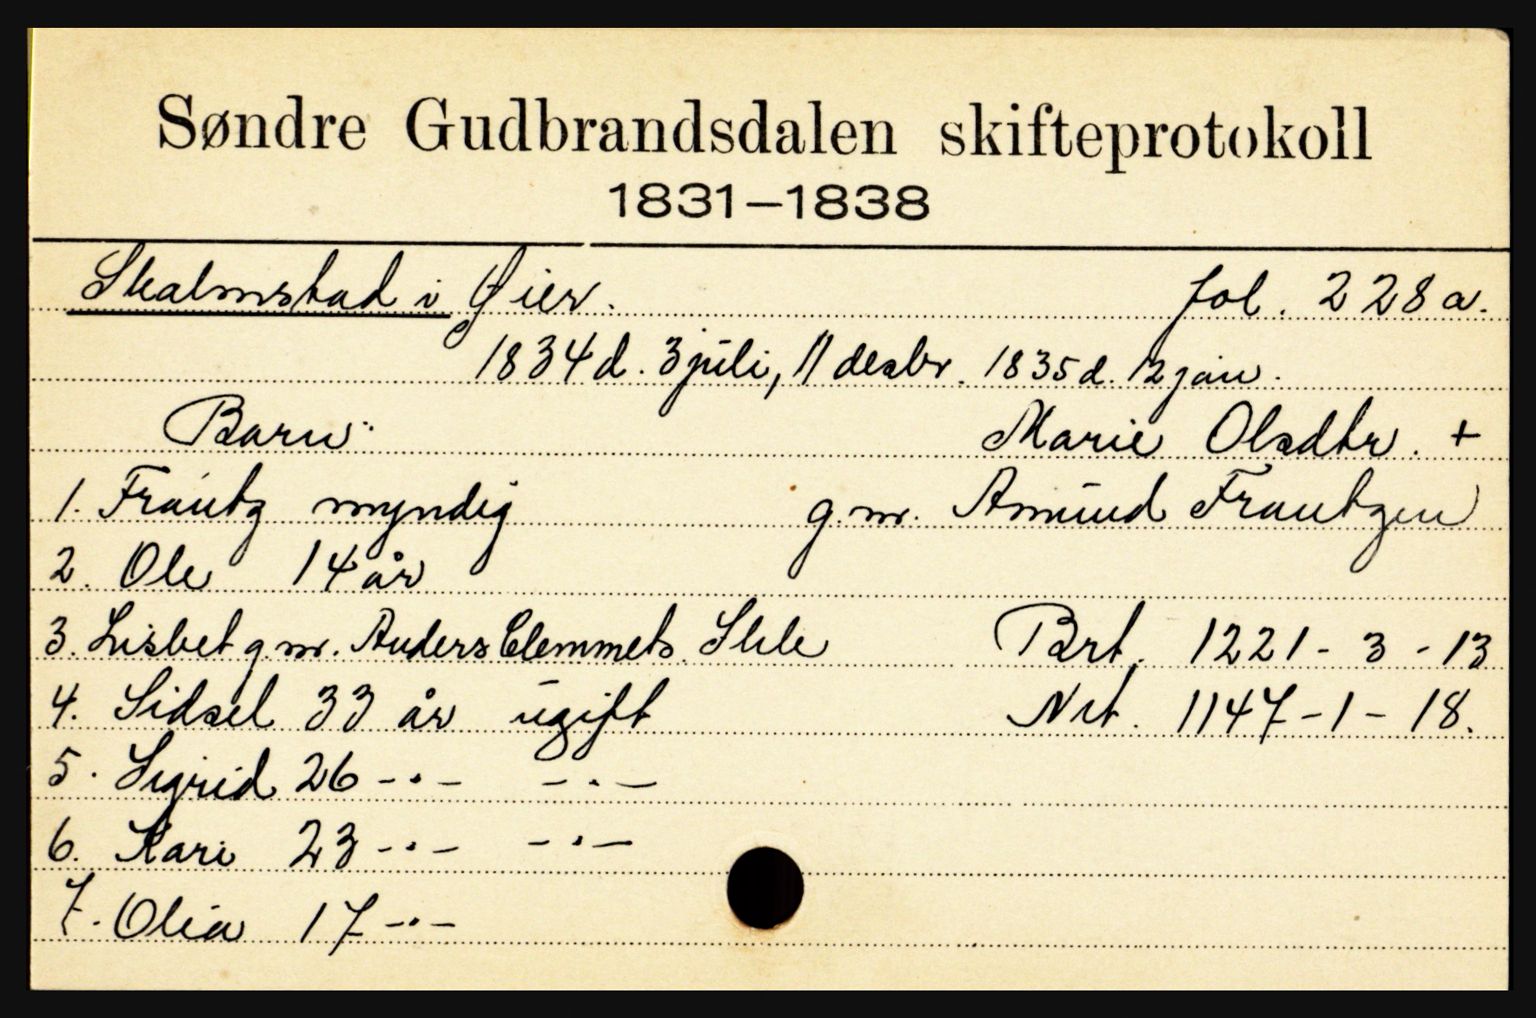 Søndre Gudbrandsdalen skifteprotokoll
1831–1838
Skalmstad i Øier. fol. 228 a.
1834 d. 3 juli, 11 desbr. 1835 d. 12 jan.
Barn: Marie Olsdtr. +
1. Frantz myndig g.m. Amund Frantzen
2. Ole 14 år
3. Lisbet g.m. Anders Clemmets. Skle Brt. 1221 - 3 - 13
4. Sidsel 33 år ugift Nrt. 1147 - 1 - 18.
5. Sigrid 26 -·- -·-
6. Kari 23 -·- -·-
7. Olia 17 -·-